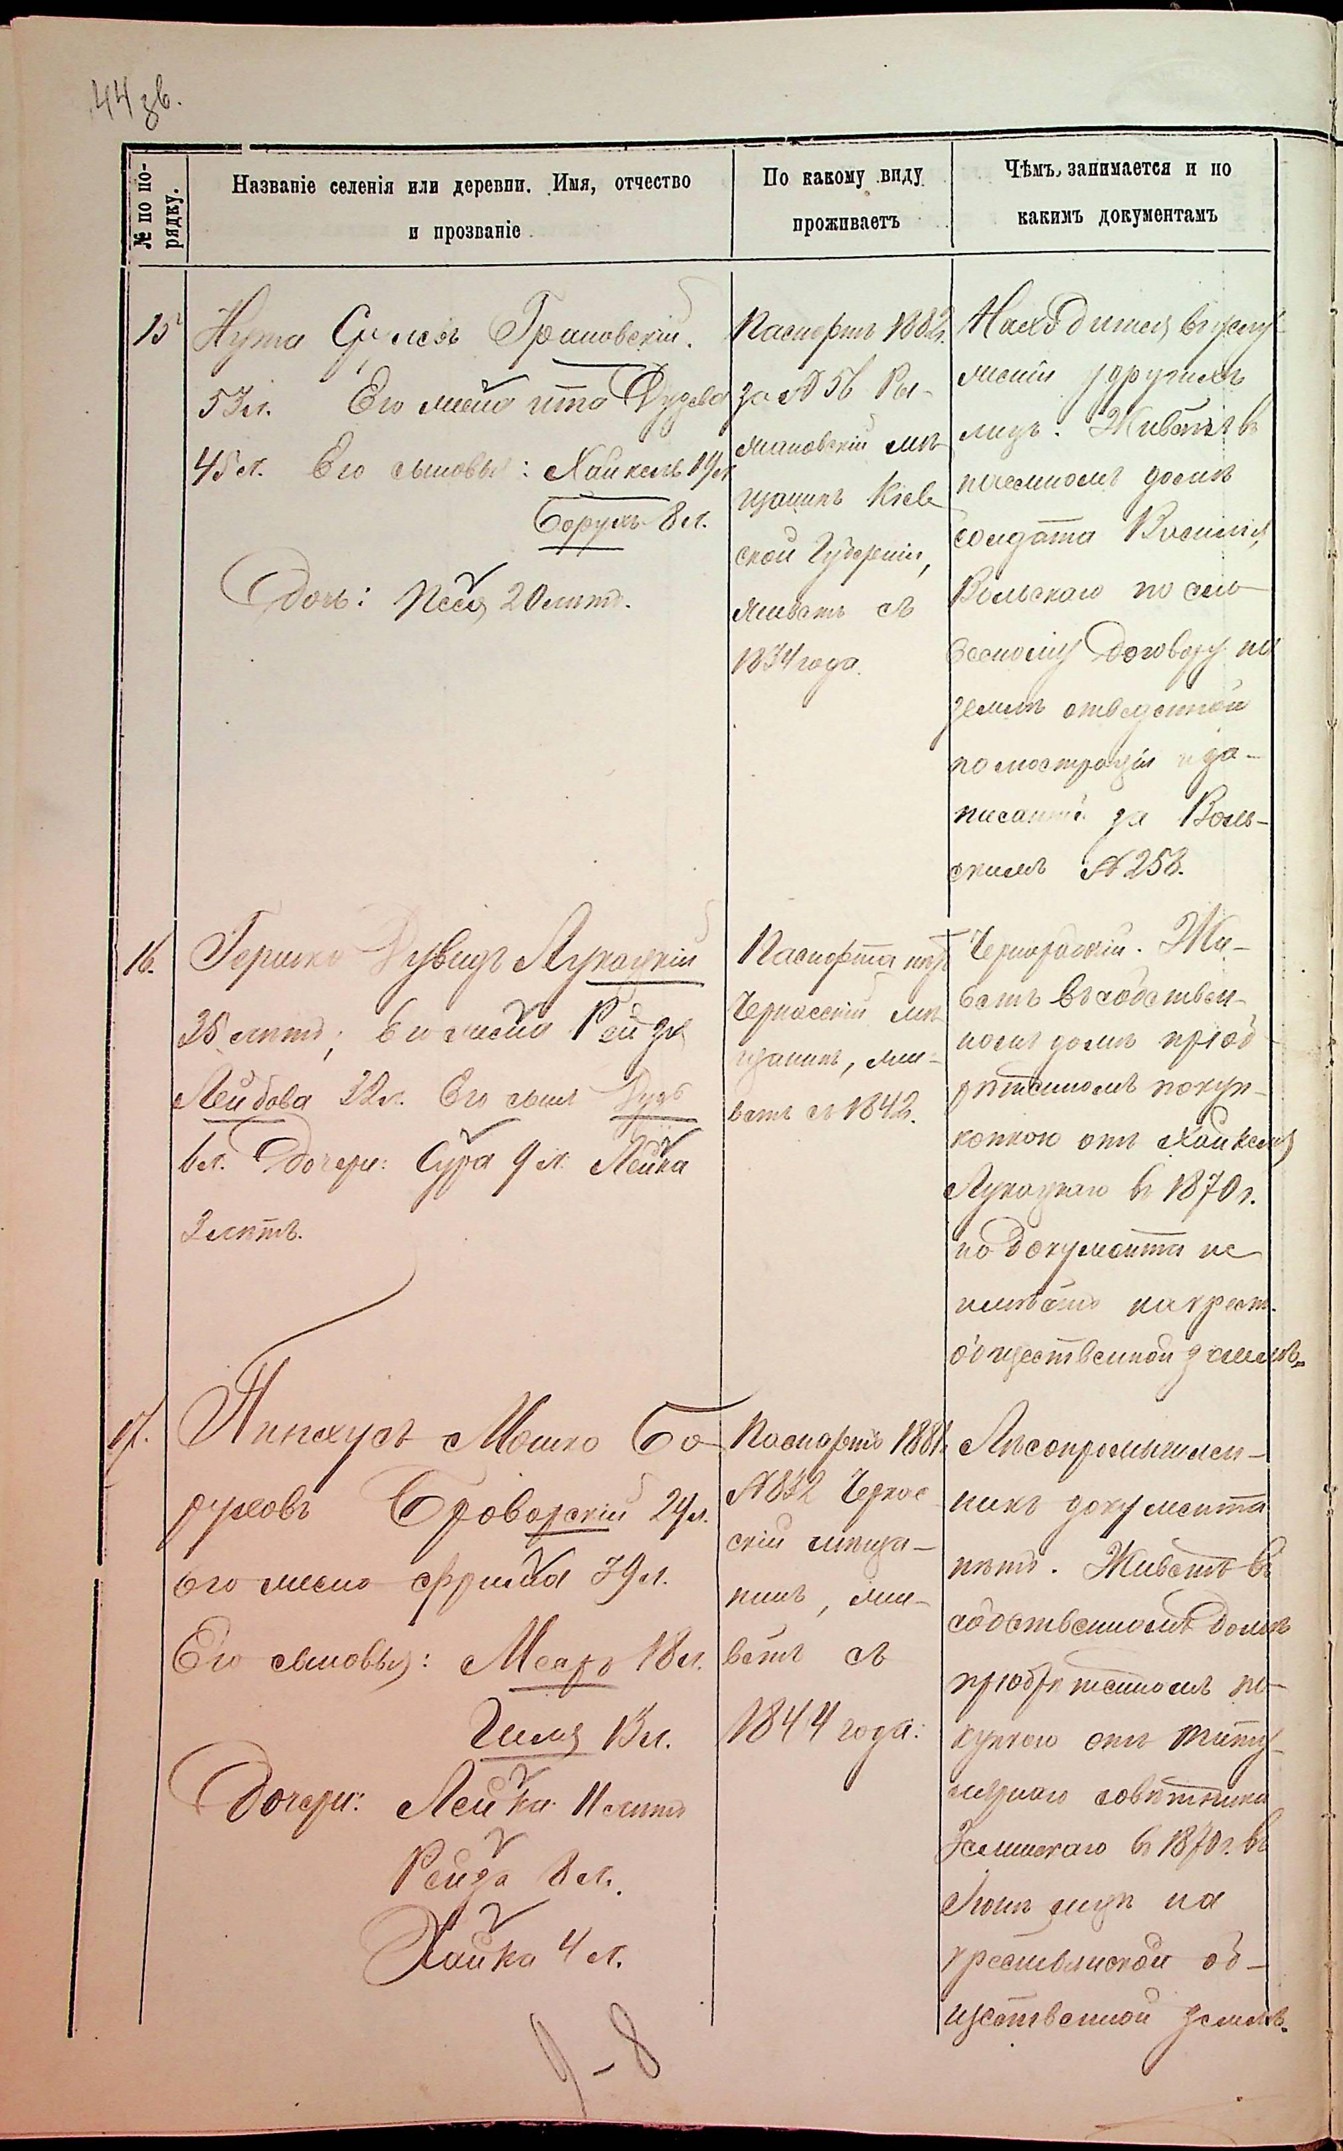 44 зв.
№ по по-
рядку.
Названіе селенія или деревни. Имя, отчество
и прозваніе
По какому виду
проживаетъ
Чѣмъ занимается и по
какимъ документамъ
15
Нута Срулевъ Грановскій.
53 л. Его жена Двузя
45 л. Его сыновья: Хайкель 19 л.
Борухъ 8 л.
Дочь: Песя 20 лѣтъ.
Паспортъ 1882 г.
за № 56
мѣ-
щанинъ Кіев
ской Губерніи,
живетъ съ
1834 года.
Находится въ услу
женіи у другихъ
лицъ. Живетъ въ
наемномъ домѣ
солдата Василія
Вольскаго по сло
весному договору на
землѣ отведенной
по люстраціи и за-
писанной за Воль-
скимъ № 258.
16.
Гершко Дувидъ Лукацкій
35 лѣтъ, Его жена Рейзя
Лейбова 32 л. Его сынъ
6 л. Дочери: Сура 9 л. Лейка
3 лѣтъ.
Паспорта нѣтъ
Черкасскій мѣ
щанинъ, жи-
ветъ съ 1842.
Чернорабочій. Жи-
ветъ въ собствен-
номъ домѣ пріоб-
рѣтенномъ покуп-
кою отъ Хайкеля
Лукацкаго въ 1870 г.
но документа не
имѣетъ на крест.
общественной землѣ.
17.
Пинхусъ Мошко Бо-
руховъ Броварскій л.
его жена Фрима 39 л.
Его сыновья: Мееръ 18 л.
Гиля 13 л.
Дочери: Лейка 11 лѣтъ
Рейза 8 л.
Хайка 4 л.
Паспортъ 1881 г.
№ 832 Черкас
скій мѣща-
нинъ, жи-
ветъ съ
1844 года.
Лѣсопромышлен-
никъ документа
нѣтъ. Живетъ въ
собственномъ домѣ
пріобрѣтенномъ по-
купкою отъ титу-
лярнаго совѣтника
въ 1870 г. въ
на
крестьянской об-
щественной землѣ.
9-8